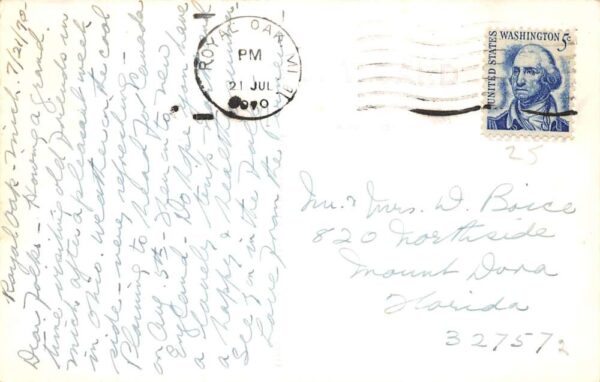 Royal Oak - Mich. 7/21/70
Dear Folks - Having a grand
time visiting old friends in
Mich after a pleasant week
in Ohio. Weather on the cool
side - very refreshing -
Planning to head for Canada
on Aug. 5th - Then on to new
England - Do hope you have
a lovely
a happy & healthy
See you in the
Love from the
ROYAL OAK, MI
PM
21 JUL
UNITED STATES
WASHINGTON 5c
25
Mr. & Mrs. D. Boice
820 Northside
Mount Dora
Florida
32757
2